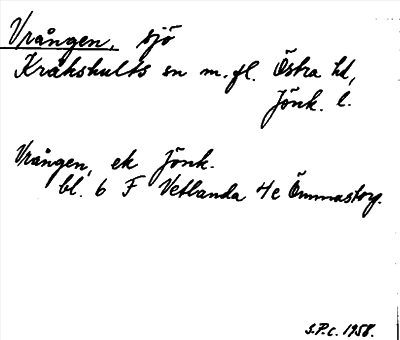 Vrången, sjö
Kråkshults sn m.fl. Östra hd,
Jönk. l.
Vrången, ek Jönk.
bl. 6 F Vetlanda 4e Ömmastorp.
S.P.c. 1958.